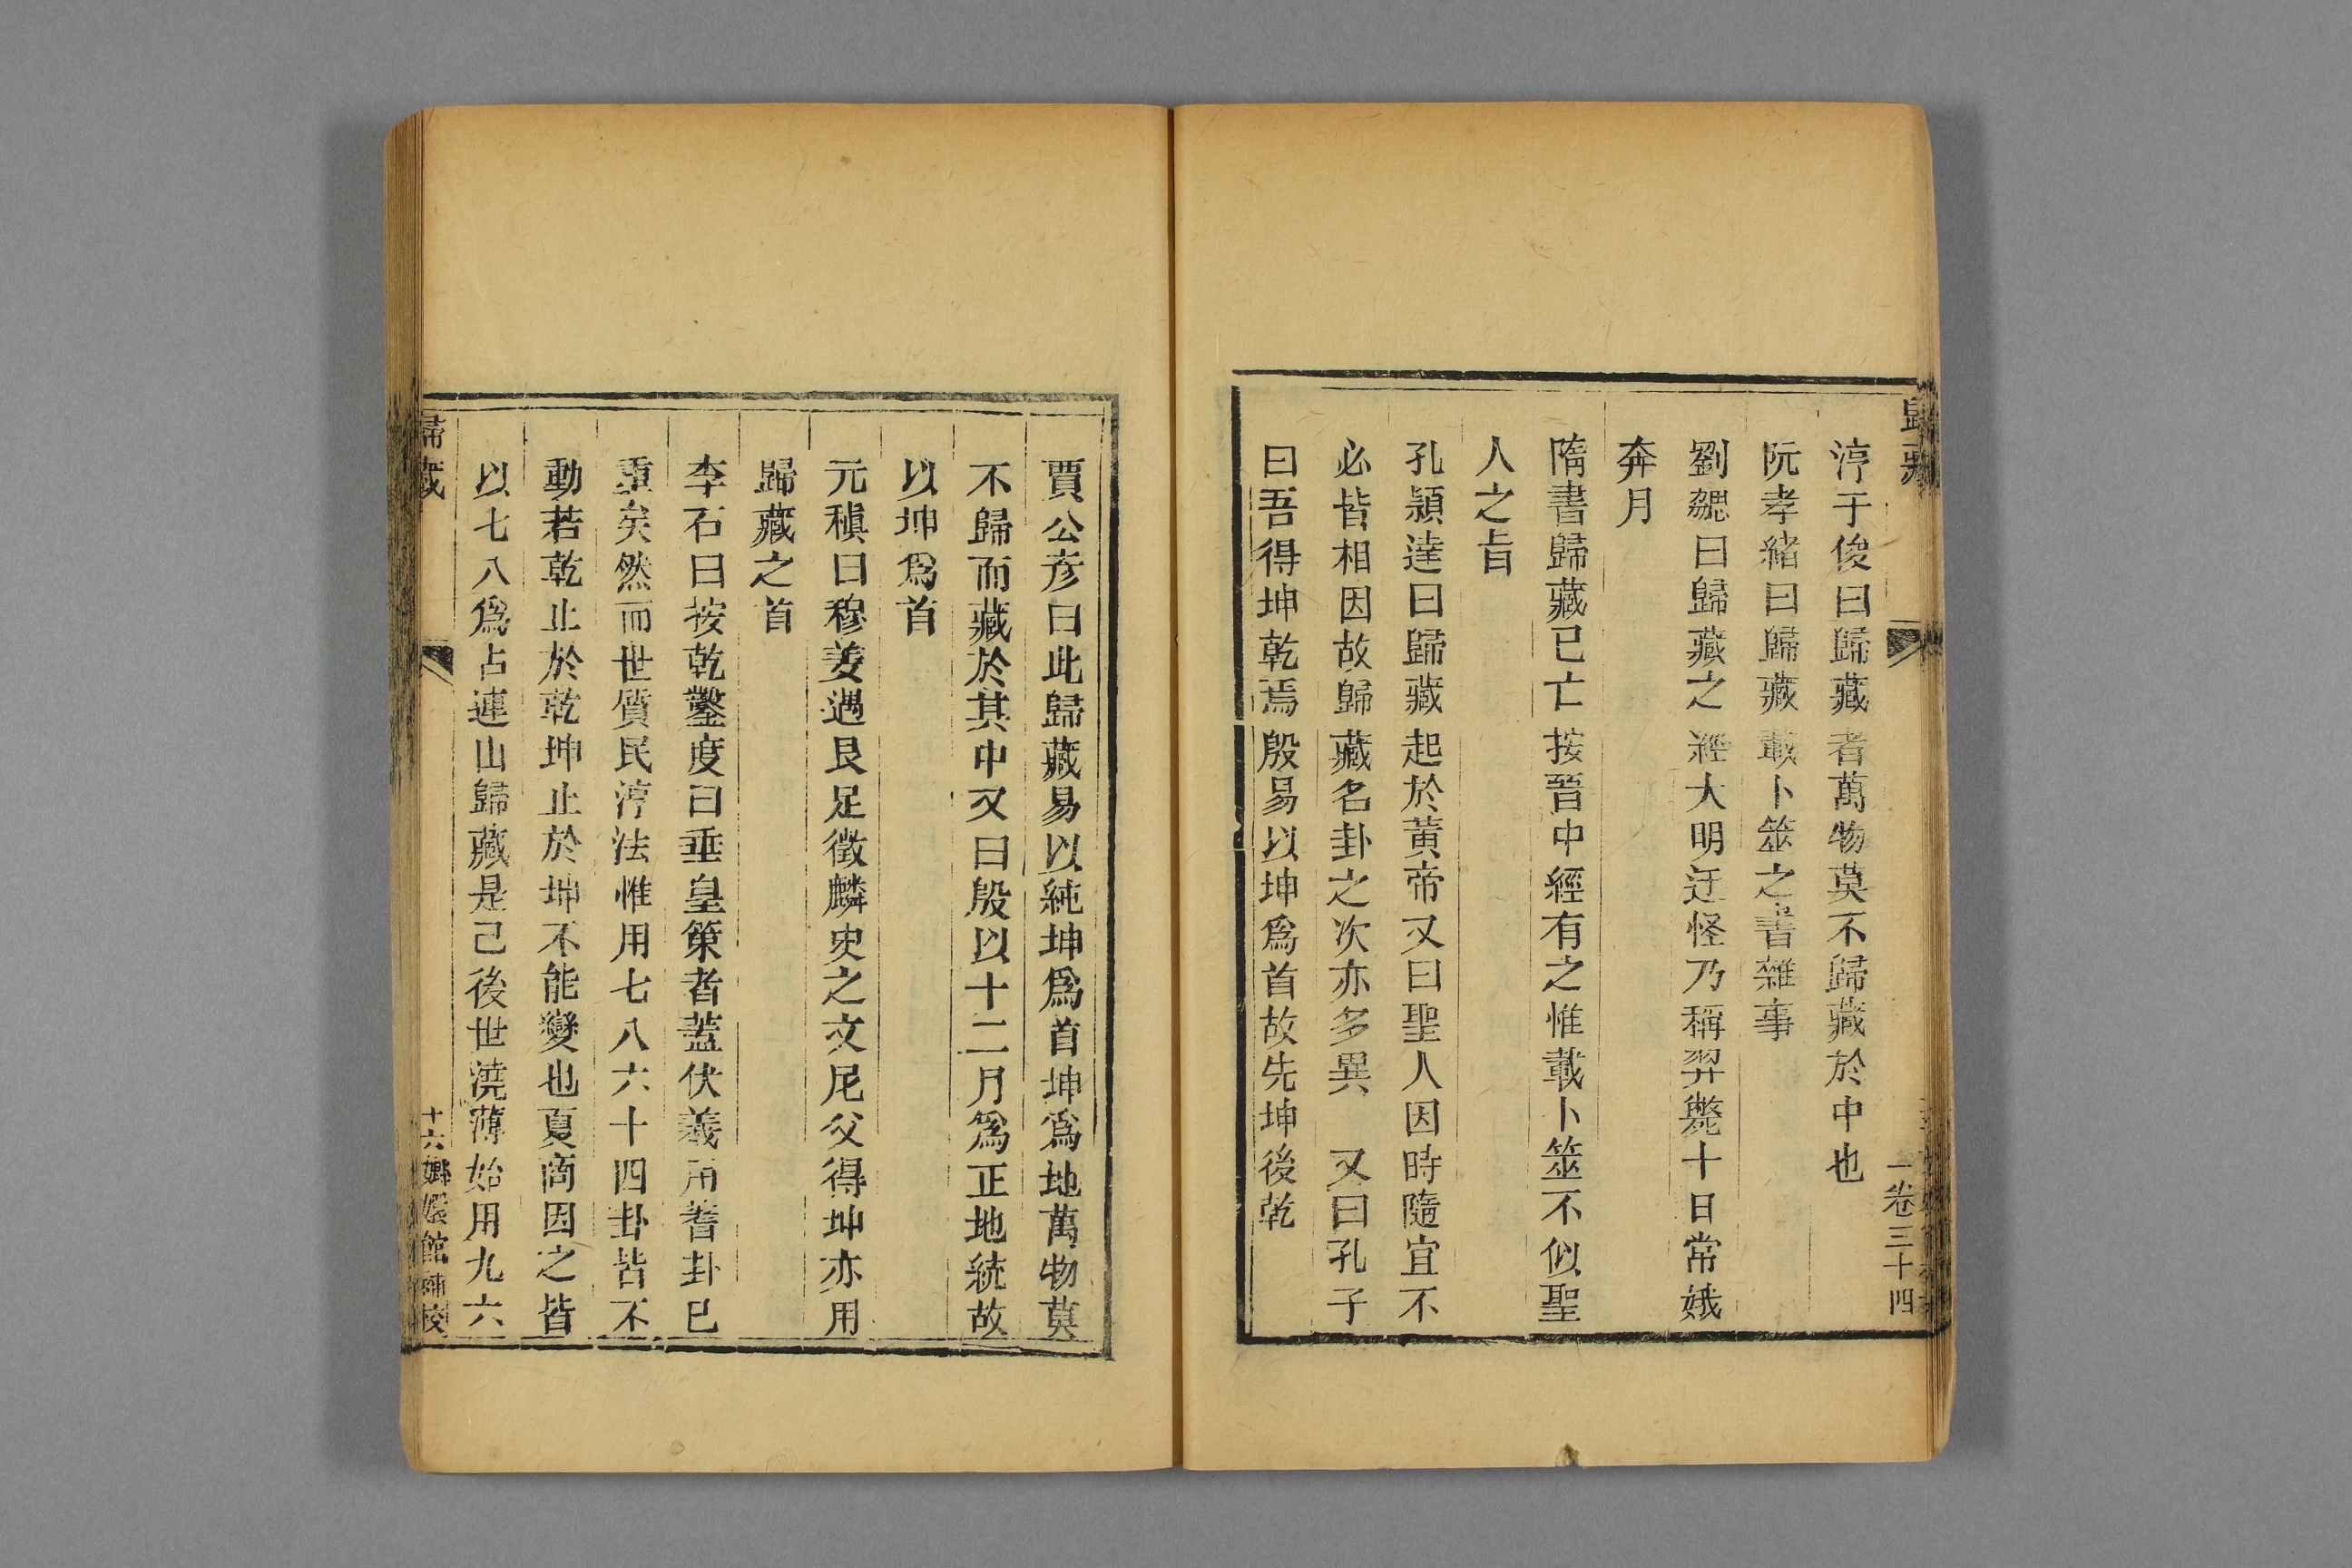 歸藏
一卷三十四
淳于俊曰歸藏者萬物莫不歸藏於中也
阮孝緒曰歸藏載卜筮之書雜事
劉勰曰歸藏之經大明迂怪乃稱羿斃十日常娥
奔月
隋書歸藏已亡按晉中經有之惟載卜筮不似聖
人之旨
孔頴達曰歸藏起於黃帝又曰聖人因時隨宜不
必皆相因故歸藏名卦之次亦多異 又曰孔子
曰吾得坤乾焉殷易以坤爲首故先坤後乾
賈公彦曰此歸藏易以純坤爲首坤爲地萬物莫
不歸而藏於其中又曰殷以十二月爲正地統故
以坤爲首
元稹曰穆姜遇艮足徵麟史之文尼父得坤亦用
歸藏之首
李石曰按乾鑿度曰垂皇策者蓋伏羲用蓍卦已
重矣然而世質民淳法惟用七八六十四卦皆不
動若乾止於乾坤止於坤不能變也夏商因之皆
以七八爲占連山歸藏是已後世澆薄始用九六
歸藏
十六嫏嬛館補校